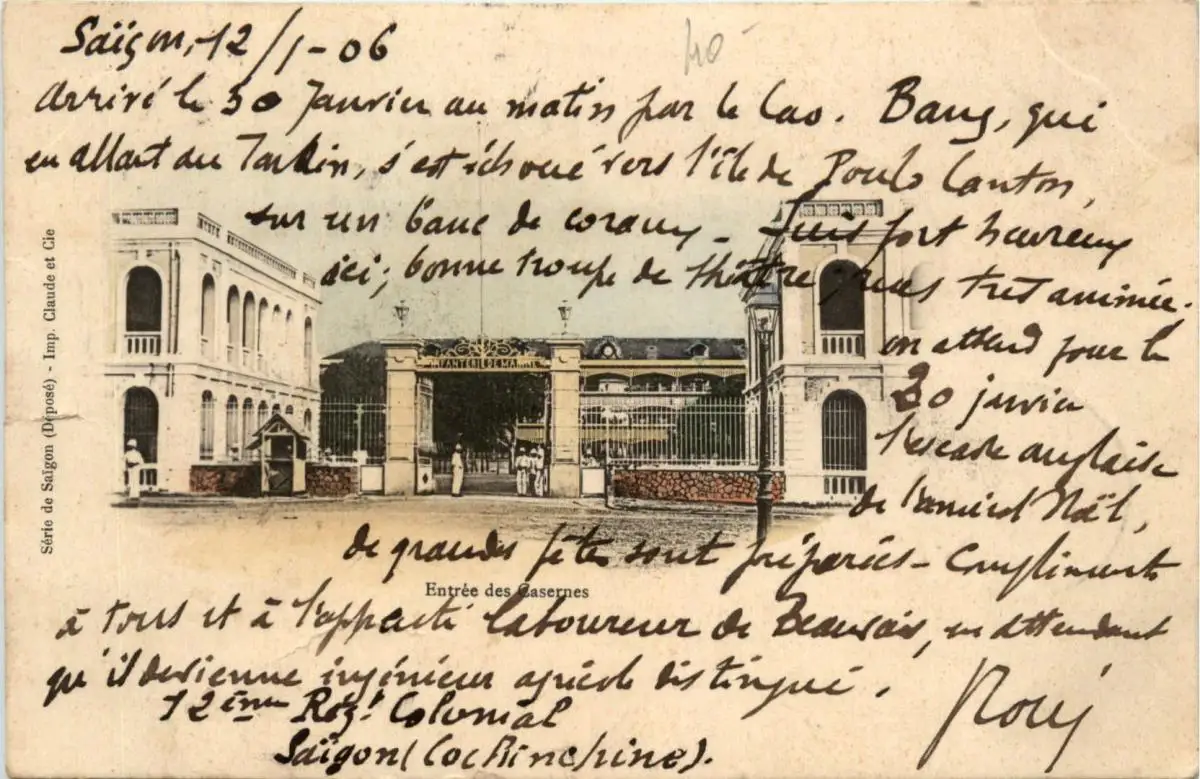 Saïgon, 12/1-06
40
Arrivé le 30 Janvier au matin par le Cao. Bang, qui
en allant au Tonkin, s'est échoué vers l'île de Poulo Canton,
sur un banc de coraux - Suis fort heureux
ici; bonne troupe de théâtre, rues très animée.
on attend pour le
30 janvier
l'escadre anglaise
de l'amiral Noël,
de grandes fêtes sont préparées - Compliments
à tous et à l'apprenti laboureur de Beauvais, en attendant
qu'il devienne ingénieur agricole distingué.
12ème Rég.t Colonial
Saïgon (Cochinchine).
INFANTERIE DE MARINE
Entrée des Casernes
Série de Saïgon (Déposé) - Imp. Claude et Cie